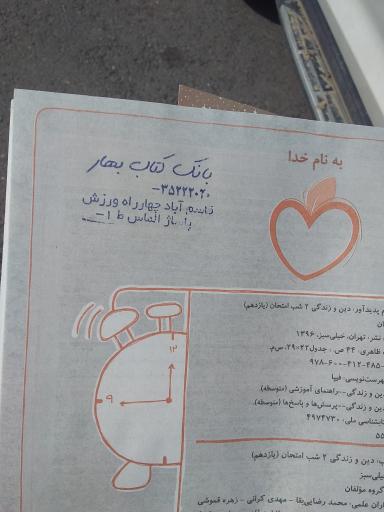 به نام خدا
بانک کتاب بهار
۳۵۲۲۲۰۲۰-
قاسم آباد چهارراه ورزش
پاساژ الماس ط ۱-
۱۲
۹
پدیدآور: دین و زندگی ۲ شب امتحان (یازدهم)
نشر: تهران، خیلی‌سبز، ۱۳۹۶
ظاهری: ۴۴ ص. ، جدول ۲۲×۲۹ س‌م.
۹۷۸-۶۰۰-۴۱۲-۴۸۵-
فهرست‌نویسی: فیپا
دین و زندگی--راهنمای آموزشی (متوسطه).
دین و زندگی--پرسش‌ها و پاسخ‌ها (متوسطه).
کتابشناسی ملی: ۴۹۷۴۷۳۰
دین و زندگی ۲ شب امتحان (یازدهم)
خیلی‌سبز
گروه مؤلفان
علمی: محمد رضایی‌بقا - مهدی کرانی - زهره قموشی